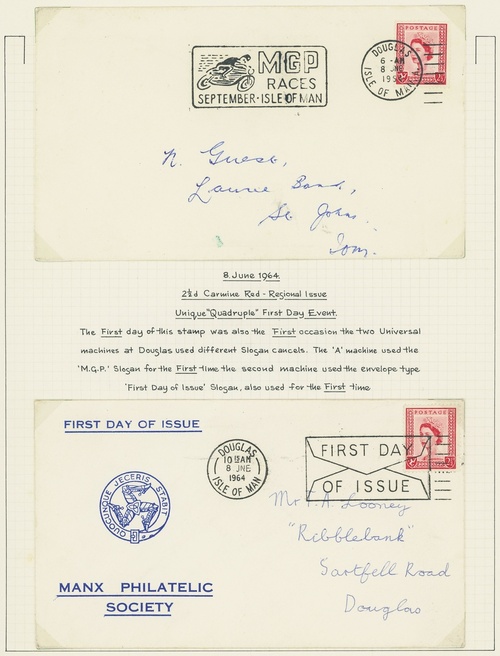 POSTAGE
MGP
RACES
SEPTEMBER-ISLE OF MAN
DOUGLAS
6 -AM
8 JNE
ISLE OF MAN
N. Guest,
Laurie Bond,
St. Johns.
Iom.
8. June 1964.
2½d Carmine Red - Regional Issue
Unique "Quadruple" First Day Event.
The First day of this stamp was also the First occasion the two Universal
machines at Douglas used different Slogan cancels. The 'A' machine used the
'M.G.P.' Slogan for the First time the second machine used the envelope type
'First Day of Issue' Slogan, also used for the First time
FIRST DAY OF ISSUE
DOUGLAS
8 JNE
1964
ISLE OF MAN
FIRST DAY
OF ISSUE
POSTAGE
QUOCUNQUE JECERIS STABIT
Mr T.A. Looney
"Ribblebank"
Sartfell Road
Douglas
MANX PHILATELIC
SOCIETY